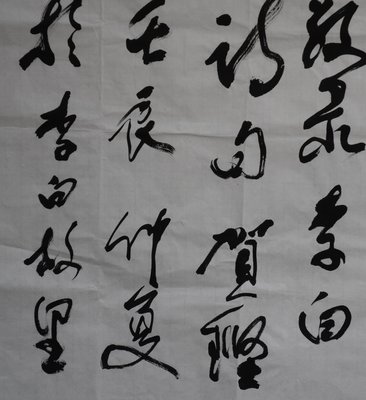 敬录李白
诗句贺铿
壬辰仲夏
于李白故里